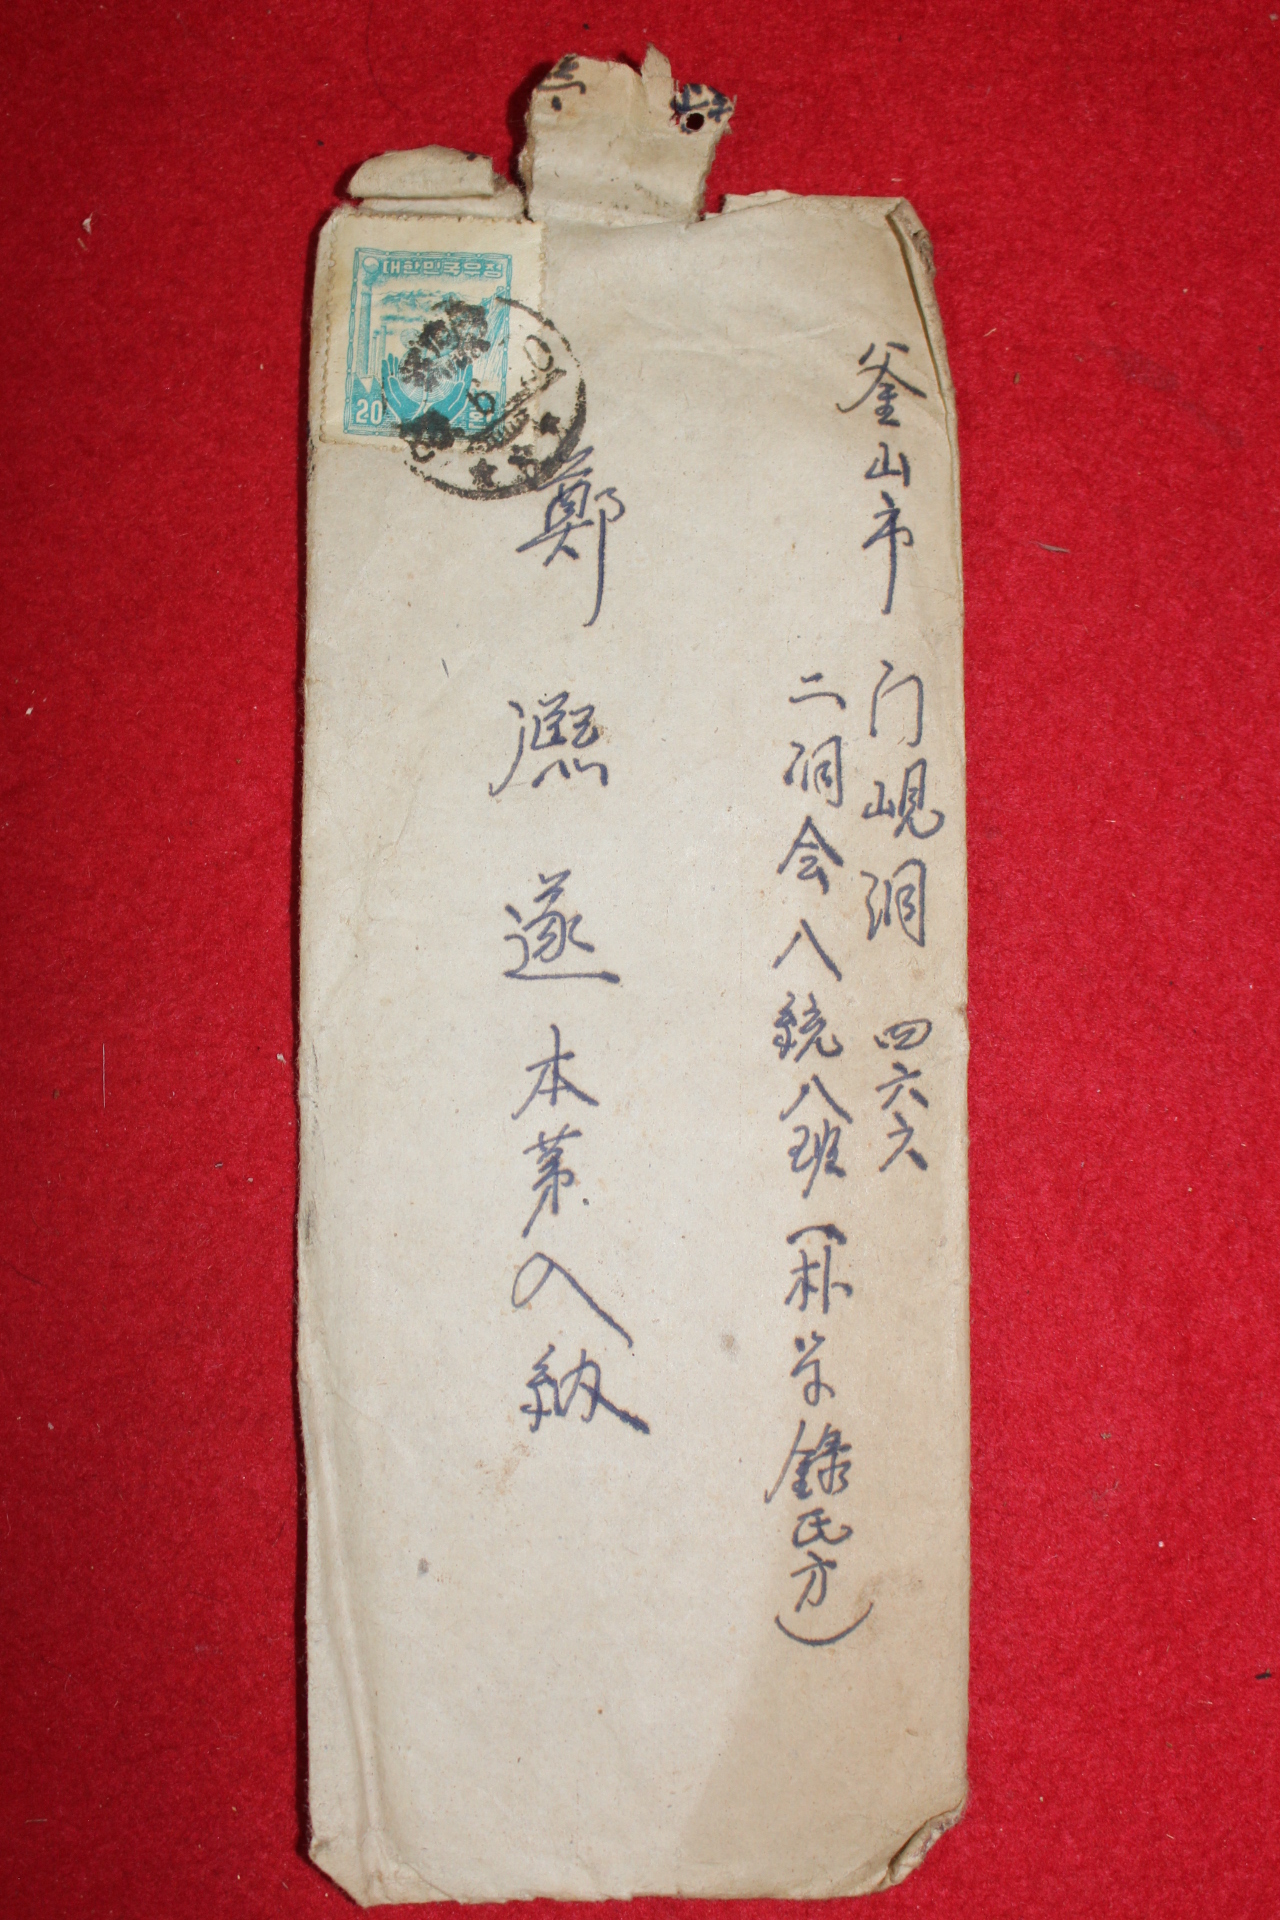 釜山市 门峴洞 四六六
二洞会 八統八班 (朴学錄氏方)
鄭 凞 遂 本苐入納
대한민국우정
20 환